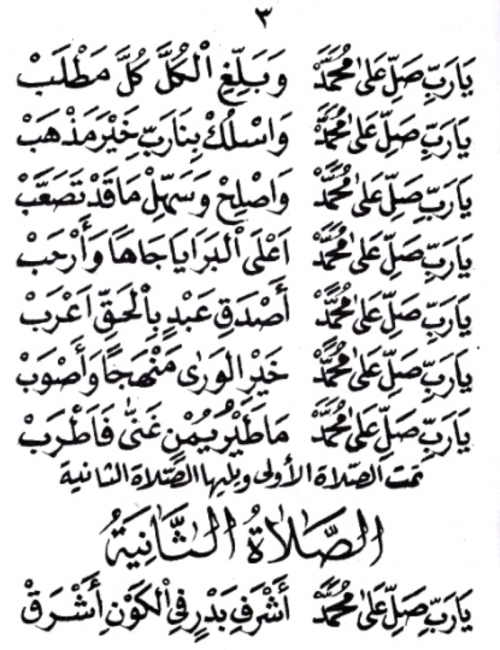 ٣
يَارَبِّ صَلِّ عَلىٰ مُحَمَّدْ وَبَلِّغِ الْكُلَّ كُلَّ مَطْلَبْ
يَارَبِّ صَلِّ عَلىٰ مُحَمَّدْ وَاسْلُكْ بِنَارَبِّ خَيْرَ مَذْهَبْ
يَارَبِّ صَلِّ عَلىٰ مُحَمَّدْ وَاصْلِحْ وَسَهِّلْ مَاقَدْ تَصَعَّبْ
يَارَبِّ صَلِّ عَلىٰ مُحَمَّدْ اَعْلَى الْبَرَايَا جَاهًا وَأَرْحَبْ
يَارَبِّ صَلِّ عَلىٰ مُحَمَّدْ أَصْدَقِ عَبْدٍ بِالْحَقِّ اَعْرَبْ
يَارَبِّ صَلِّ عَلىٰ مُحَمَّدْ خَيْرِ الْوَرٰى مَنْهَجًا وَأَصْوَبْ
يَارَبِّ صَلِّ عَلىٰ مُحَمَّدْ مَاطَيْرُ يُمْنٍ غَنّٰى فَاَطْرَبْ
تمت الصّلاة الأولى ويليها الصّلاة الثانية
الصَّلَاةُ الثَّانِيَةُ
يَارَبِّ صَلِّ عَلىٰ مُحَمَّدْ أَشْرَفِ بَدْرٍ فِى الْكَوْنِ أَشْرَقْ